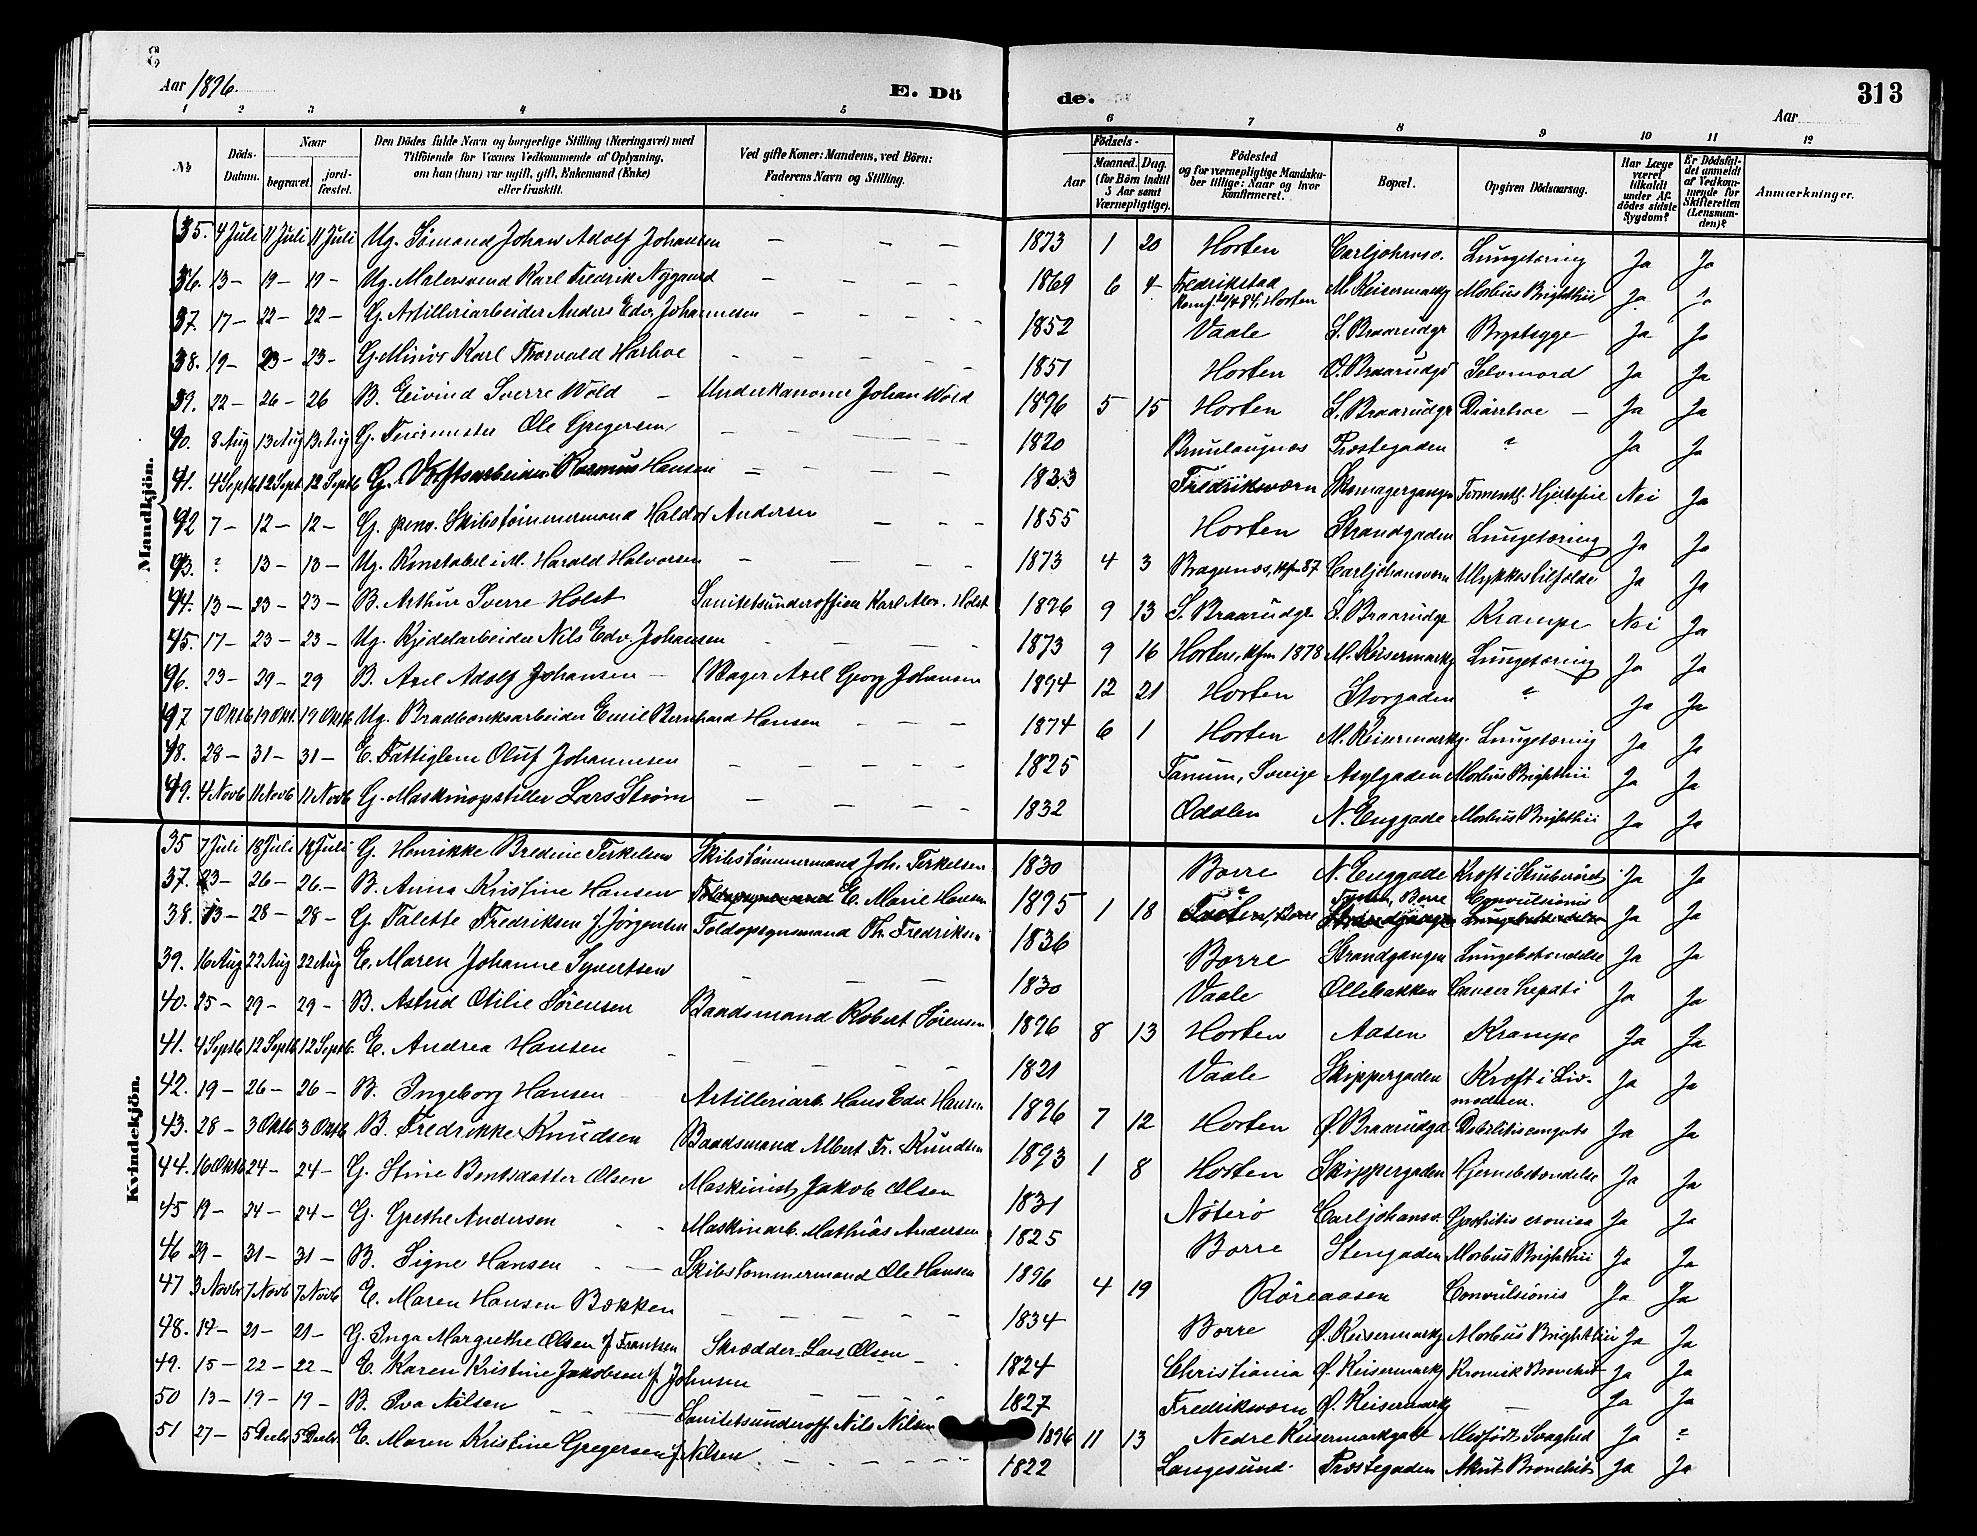 Aar 1896.
E. Dö
de.
Aar
313
1 2 3 4 5 6 7 8 9 10 11 12
No
Döds-Datum.
Naar
begravet.
jord-fæstet.
Den Dödes fulde Navn og borgerlige Stilling (Næringsvei) med Tilföiende for Voxnes Vedkommende af Oplysning, om han (hun) var ugift, gift, Enkemand (Enke) eller fraskilt.
Ved gifte Koner: Mandens, ved Börn: Faderens Navn og Stilling.
Födsels-
Aar
Maaned. Dag. (for Börn indtil 5 Aar samt Værnepligtige).
Födested og for værnepligtige Mandskaber tillige: Naar og hvor konfirmeret.
Bopæl.
Opgiven Dödsaarsag.
Har Læge været tilkaldt under Afdödes sidste Sygdom?
Er Dödsfaldet anmeldt af Vedkommende for Skifteretten (Lensmanden)?
Anmærkninger.
Mandkjön.
35. 4 Juli 11 Juli 11 Juli Ug. Sömand Johan Adolf Johansen — 1873 1 20 Horten Carljohansv. Lungetæring Ja Ja
36. 13 — 19 — 19 — Ug. Malersvend Karl Fredrik Nygaard — 1869 6 4 Fredrikstad Konf. 84, Horten M. Keisermarkg Morbus Brighthii Ja
37. 17 — 22 — 22 — G. Artilleriarbeider Anders Edv. Johannesen — 1852 Vaale S. Braarudgt Brystsyge Ja Ja
38. 19 — 23 — 23 — G. Minör Karl Thorvald Harboe — 1851 Horten Ö. Braarudgt Selvmord Ja Ja
39. 22 — 26 — 26 B. Eivind Sverre Wold — Underkanoner Johan Wold 1896 5 15 Horten S. Braarudgt Diarrhoe — Ja Ja
40. 8 Aug 13 Aug 13 Aug G. Feiermester Ole Gregersen — 1820 Brunlaugnes Prostegaden ? Ja Ja
41. 4 Septb 12 Sept 12 Septb G. Værftsarbeider Rasmus Hansen — 1833 Fredriksværn Skomagergangen Forment. Hjertefeil Nei Ja
42 7 — 12 — 12 — G. pens. Skibstømmermand Haldor Andersen — 1855 Horten Strandgaden Lungetæring Ja Ja
43. ? 13 — 13 — Ug. Konstabel i M. Harald Halvorsen — 1873 4 3 Bragernes, kfm 87 Carljohansvern Ulykkestilfælde Ja Ja
44. 13 — 23 — 23 — B. Arthur Sverre Holst Sanitetsunderofficer Karl Alex. Holst 1896 9 13 S. Braarudgt S. Braarudgt Krampe Nei Ja
45. 17 — 23 — 23 — Ug. Kjedelarbeider Nils Edv. Johansen — 1873 9 16 Horten, kfm 1878 M. Keisermarkg Lungetæring Ja Ja
46. 23 — 29 — 29 B. Axel Adolf Johansen — Bager Axel Georg Johansen 1894 12 21 Horten Storgaden ? Ja Ja
47 7 Oktb 19 Okt. 19 Oktb Ug. Bradbænksarbeider Emil Bernhard Hansen — 1874 6 1 Horten M. Keisermarkg. Lungetæring Ja Ja
48. 28 — 31 — 31 — E. Fattiglem Oluf Johannesen — 1825 Tanum, Sverige Asylgaden Morbus Brighthii Ja Ja
49. 4 Novb 11 Novb 11 Novb G. Maskinopstiller Lars Strøm — 1832 Odalen N. Enggade Morbus Brighthii Ja Ja
Kvindekjön.
35 7 Juli 18 Juli 18 Juli G. Henrikke Bredine Terkelsen Skibstömmermand Joh. Terkelsen 1830 Borre N. Enggade Kræft i Ja Ja
37. 23 — 26 — 26 — B. Anna Kristine Hansen E. Marie Hansen 1895 1 18 Borre Borre Convulsionis Ja Ja
38. 13 — 28 — 28 — G. Talette Fredriksen f. Jörgensen Toldopsynsmand Th. Fredriksen 1836 Borre Strandgangen Lungebetændelse Ja Ja
39. 16 Aug 22 Aug 22 Aug E. Maren Johanne Syvertsen — 1830 Vaale Ollebakken Cancer hepati Ja Ja
40. 25 — 29 — 29 — B. Astrid Otilie Sörensen Baadsmand Robert Sörensen 1896 8 13 Horten Aasen Krampe Ja Ja
41. 4 Septb 12 Septb 12 Septb. E. Andrea Hansen — 1821 Vaale Skippergaden Kræft i Livmoderen. Ja Ja
42. 19 — 26 — 26 — B. Ingeborg Hansen Artilleriarb. Hans Edv. Hansen 1896 7 12 Horten Ø. Braarudgd. Debilitis Ja Ja
43. 28 — 3 Oktb 3 Oktb B. Fredrikke Knudsen Baadsmand Albert Fr. Knudsen 1893 1 8 Horten Skippergaden Hjernebetændelse Ja Ja
44. 16 Oktb 24 — 24 — G. Stine Bentsdatter Olsen Maskinist Jakob Olsen 1831 Nöterö Carljohansv. Gastritis cronica Ja Ja
45 19 — 24 — 24 — G. Grethe Andersen Maskinarb. Mathias Andersen 1825 Borre Stengaden Morbus Brighthii Ja Ja
46 29 — 31 — 31 — B. Signe Hansen Skibstömmermand Ole Hansen 1896 4 19 Röreaasen Convulsionis Ja Ja
47 3 Novbr 7 Novb 7 Novb E. Maren Hansen Bækken — 1834 Borre Ø. Keisermarkg Morbus Brighthii Ja Ja
48. 14 — 21 — 21 — G. Inga Margrethe Olsen f Frantsen Skrædder Lars Olsen — 1824 Christiania Ø. Keisermarkg Kronisk Bronchit Ja Ja
49. 15 — 22 — 22 — E. Karen Kristine Jakobsen f. Johnsen — 1827 Fredriksværn Ø. Keisermarkg — Ja Ja
50 13 — 19 — 19 — B. Eva Nilsen Sanitetsunderoff. Nils Nilsen 1896 11 13 Nedre Keisermarkgatt Medfödt Svaghed Ja ?
51 27 — 5 Decbr 5 Decbr. E. Maren Kristine Gregersen f. Nilsen — 1822 Langesund. Prostegaden Akut Bronchit Ja Ja